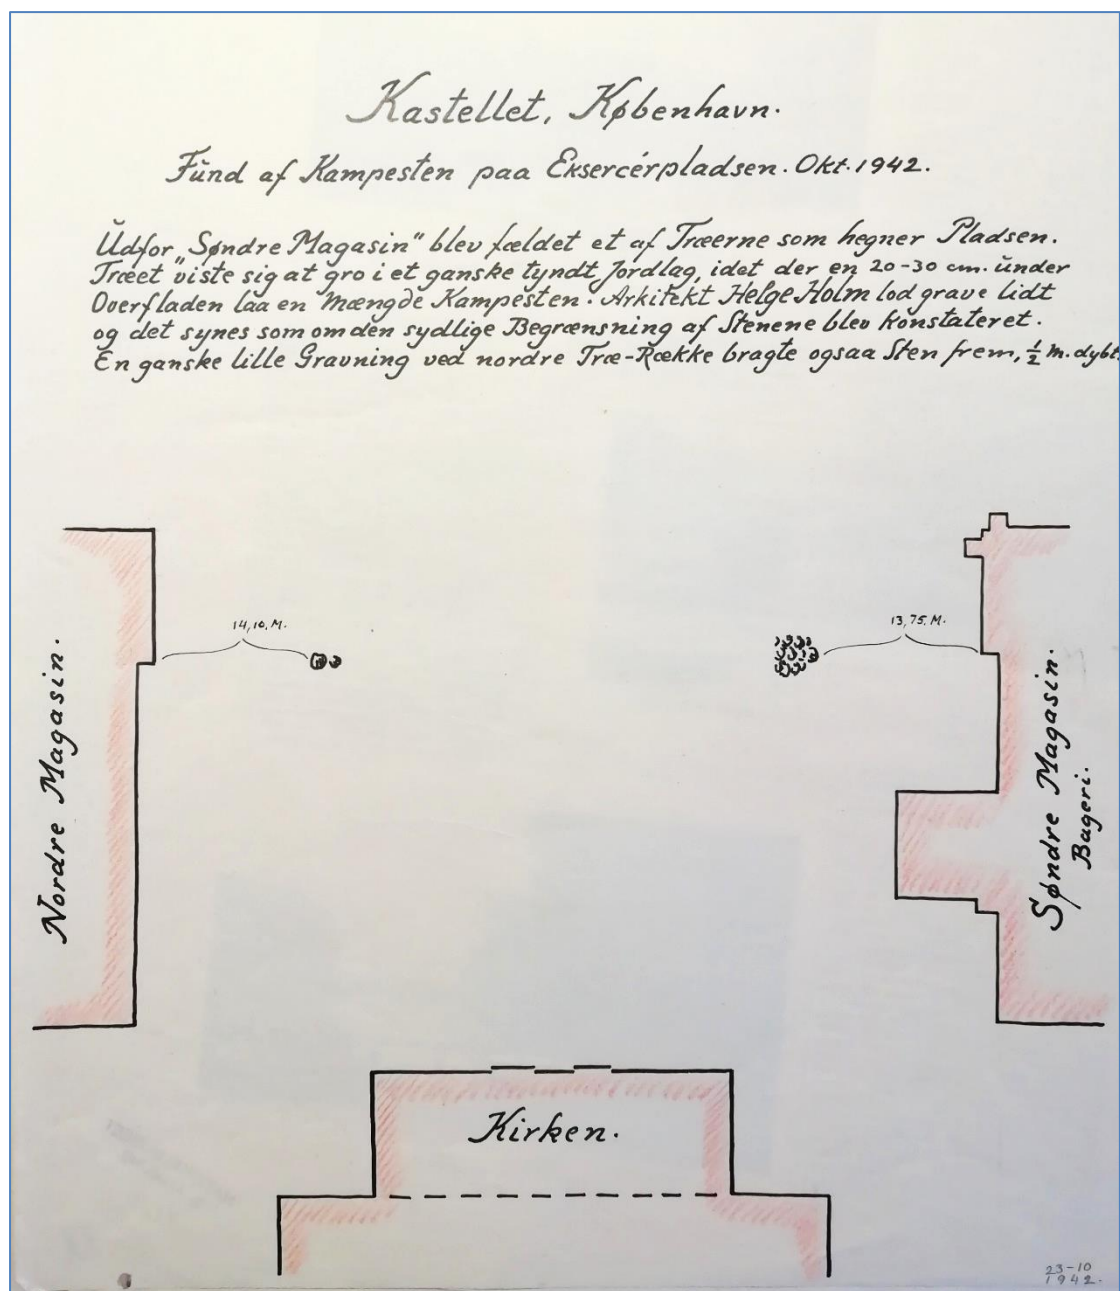 Kastellet, København.
Fund af Kampesten paa Eksercérpladsen. Okt. 1942.
Udfor „Søndre Magasin" blev fældet et af Træerne som hegner Pladsen.
Træet viste sig at gro i et ganske tyndt Jordlag, idet der en 20-30 cm. under
Overfladen laa en Mængde Kampesten. Arkitekt Helge Holm lod grave lidt
og det synes som om den sydlige Begrænsning af Stenene blev konstateret.
En ganske lille Gravning ved nordre Træ-Række bragte ogsaa Sten frem, ½ m. dybt.
14,10, M.
13,75, M.
Nordre Magasin.
Søndre Magasin.
Bageri.
Kirken.
23-10
1942.